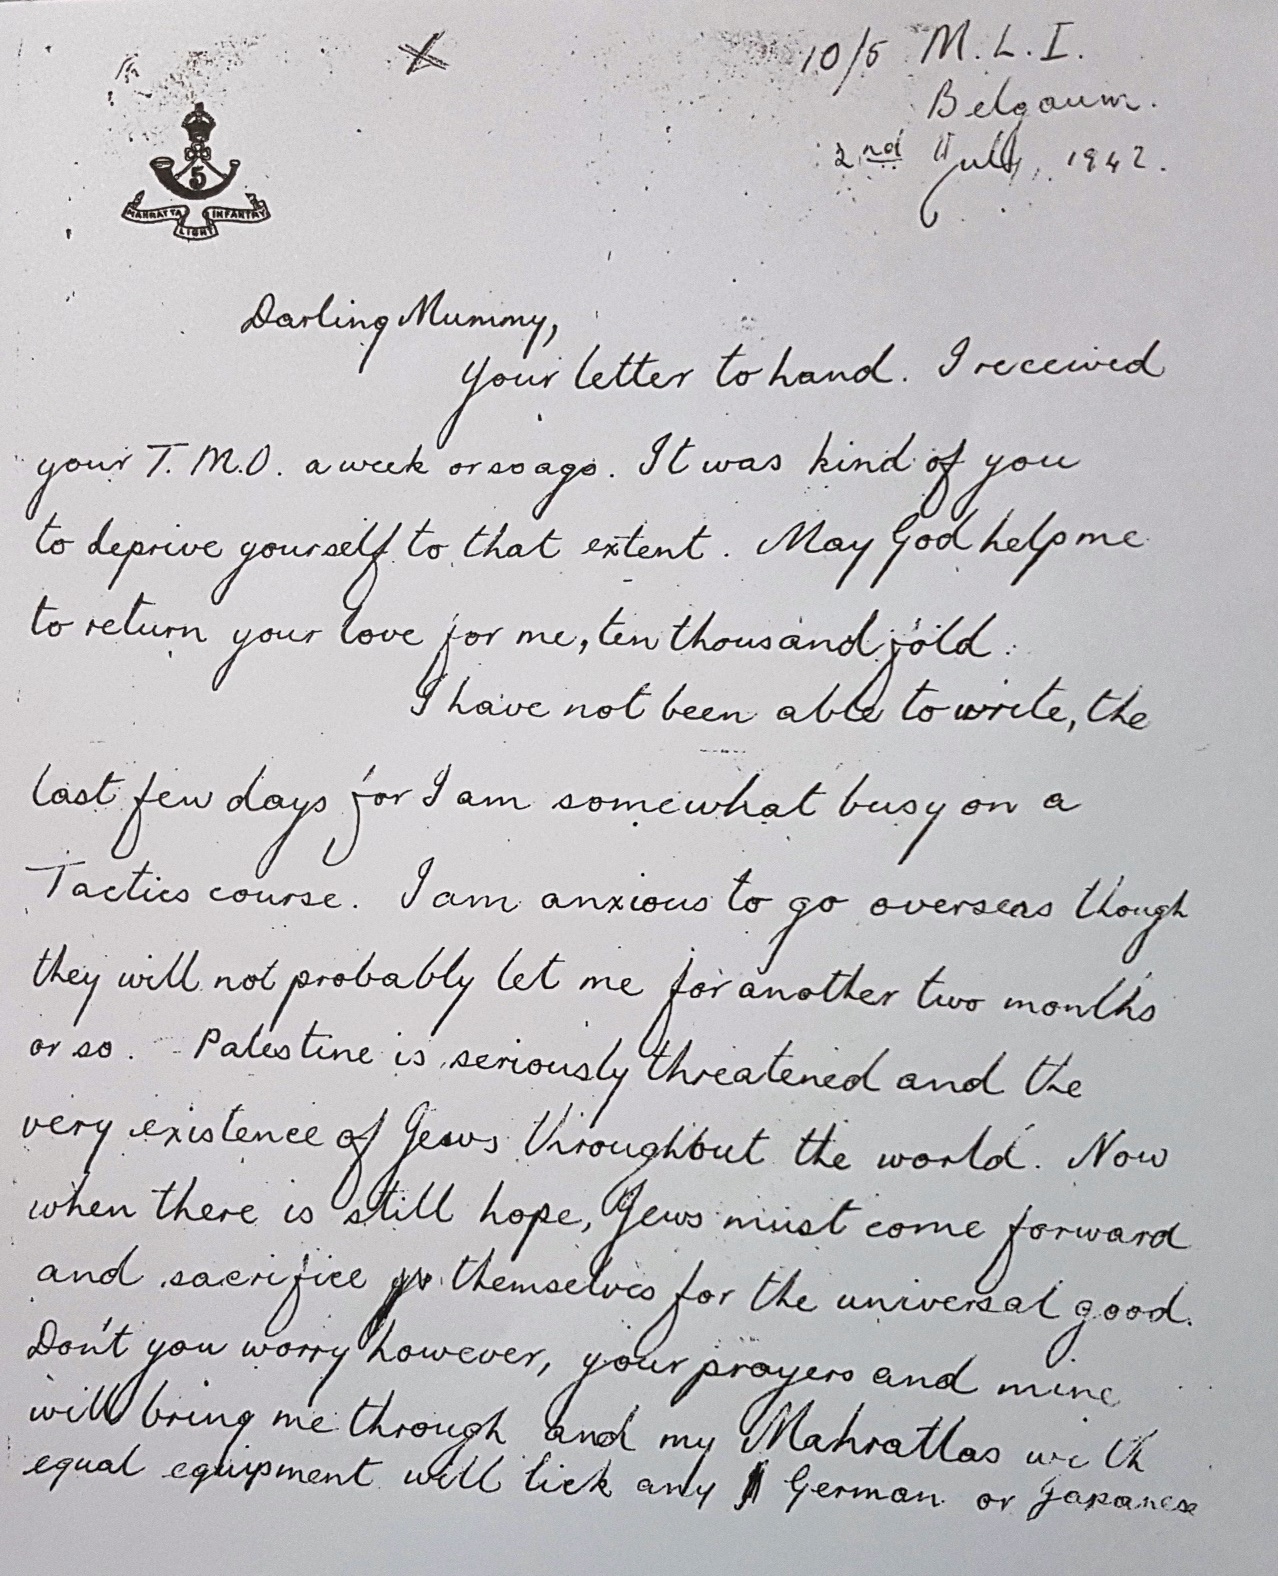 10/5 M.L.I.
Belgaum.
2nd July, 1942.
5
MAHRATTA LIGHT INFANTRY
Darling Mummy,
Your letter to hand. I received
your T.M.O. a week or so ago. It was kind of you
to deprive yourself to that extent. May God help me
to return your love for me, ten thousand fold.
I have not been able to write, the
last few days for I am somewhat busy on a
Tactics course. I am anxious to go overseas though
they will not probably let me for another two months
or so. Palestine is seriously threatened and the
very existence of Jews throughout the world. Now
when there is still hope, Jews must come forward
and sacrifice themselves for the universal good.
Don't you worry however, your prayers and mine
will bring me through and my Mahrattas with
equal equipment will lick any German or Japanese